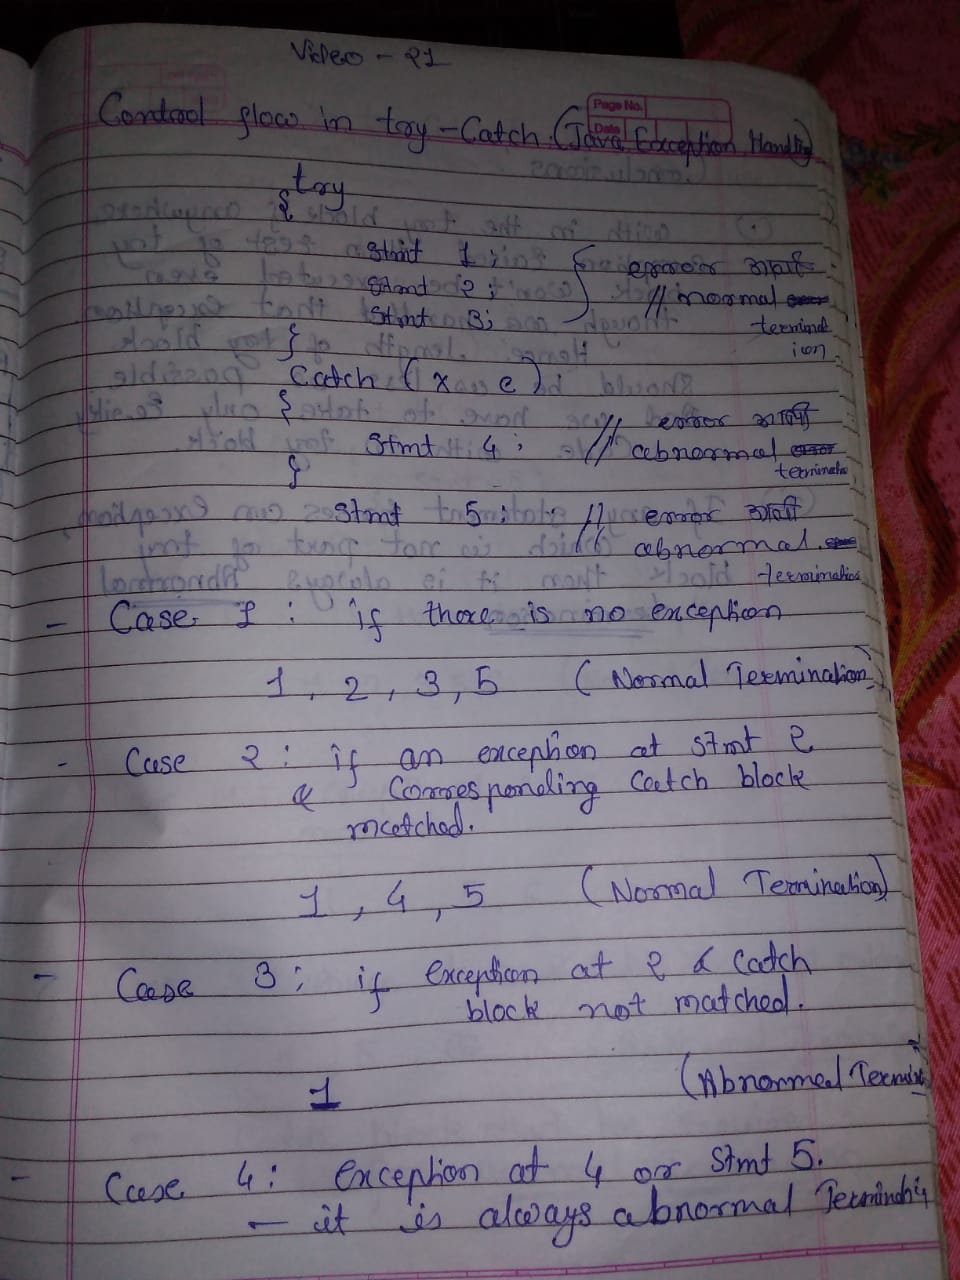 Video - 21
Page No.
Date
Control flow in try-Catch (Java Exception Handling)
try
{
Stmt 1;
Stmt 2;
Stmt 3;
} error आयी // normal termination
}
Catch (x e)
{
Stmt 4; // error आयी abnormal terminatn
}
Stmt 5; // error आयी abnormal termination
- Case 1: if there is no exception
1, 2, 3, 5 (Normal Termination)
- Case 2: if an exception at stmt 2
& Corresponding Catch block
matched.
1, 4, 5 (Normal Termination)
- Case 3: if exception at 2 & Catch
block not matched.
1 (Abnormal Termin
- Case 4: exception at 4 or Stmt 5.
- it is always abnormal